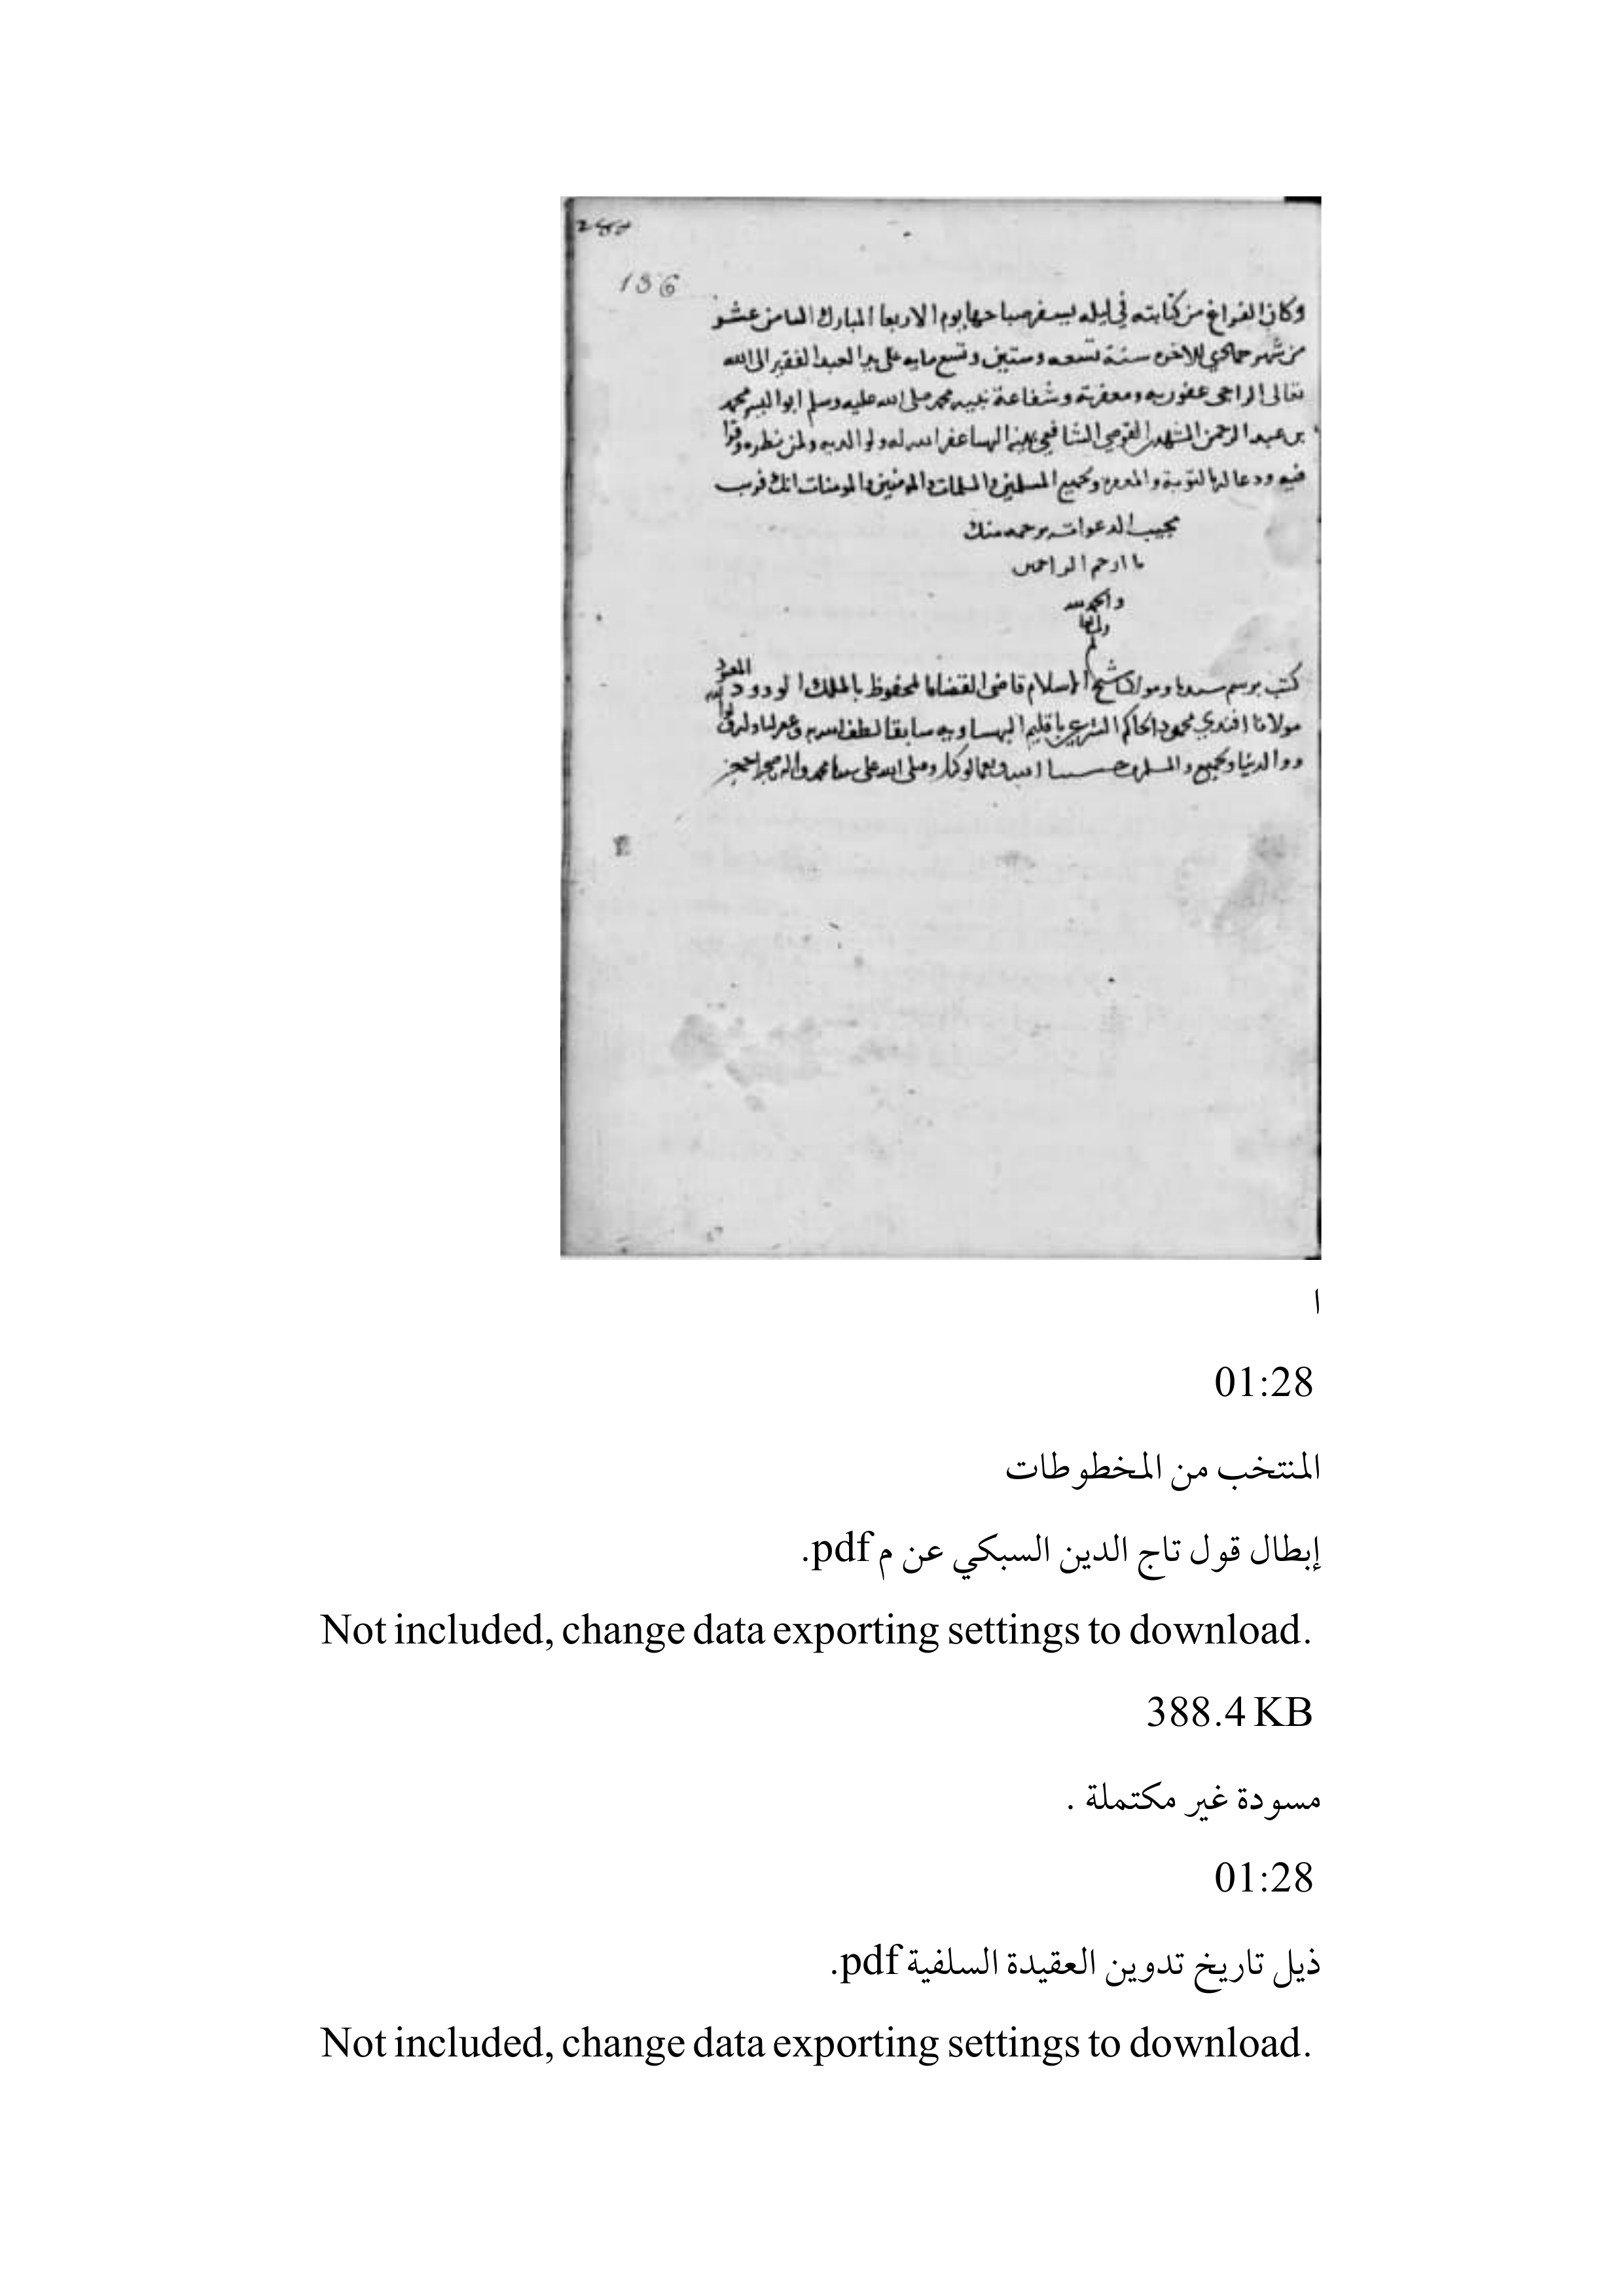 136
وكان الفراغ من كتابته في ليله يسفر صباحها يوم الاربعا المبارك الثامن عشر
من شهر جمادي الاخره سنة تسعه وستين وتسع مايه على يد العبد الفقير الى الله
تعالى الراجى عفو ربه ومغفرته وشفاعة نبيه محمد صلى الله عليه وسلم ابو اليسر محمد
بن عبد الرحمن الشهير القوصي الشافعي غفر الله له ولوالديه ولمن نظره وقرا
فيه ودعا لهم بالتوبة والمغفره ولجميع المسلمين والمسلمات والمومنين والمومنات انك قريب
مجيب الدعوات برحمه منك
يا ارحم الراحمين
والحمد لله
كتب برسم سيدنا ومولانا شيخ الاسلام قاضى القضاه المحفوظ بالملك الودود
مولانا افندي محمود الحاكم الشرعي باقليم البهنساويه سابقا لطف الله به
ووالدينا ولجميع المسلمين حسبنا الله ونعم الوكيل وصلى الله على سيدنا محمد واله وصحبه اجمعين
ا
01:28
المنتخب من المخطوطات
إبطال قول تاج الدين السبكي عن م pdf.
Not included, change data exporting settings to download.
388.4 KB
مسودة غير مكتملة .
01:28
ذيل تاريخ تدوين العقيدة السلفية pdf.
Not included, change data exporting settings to download.